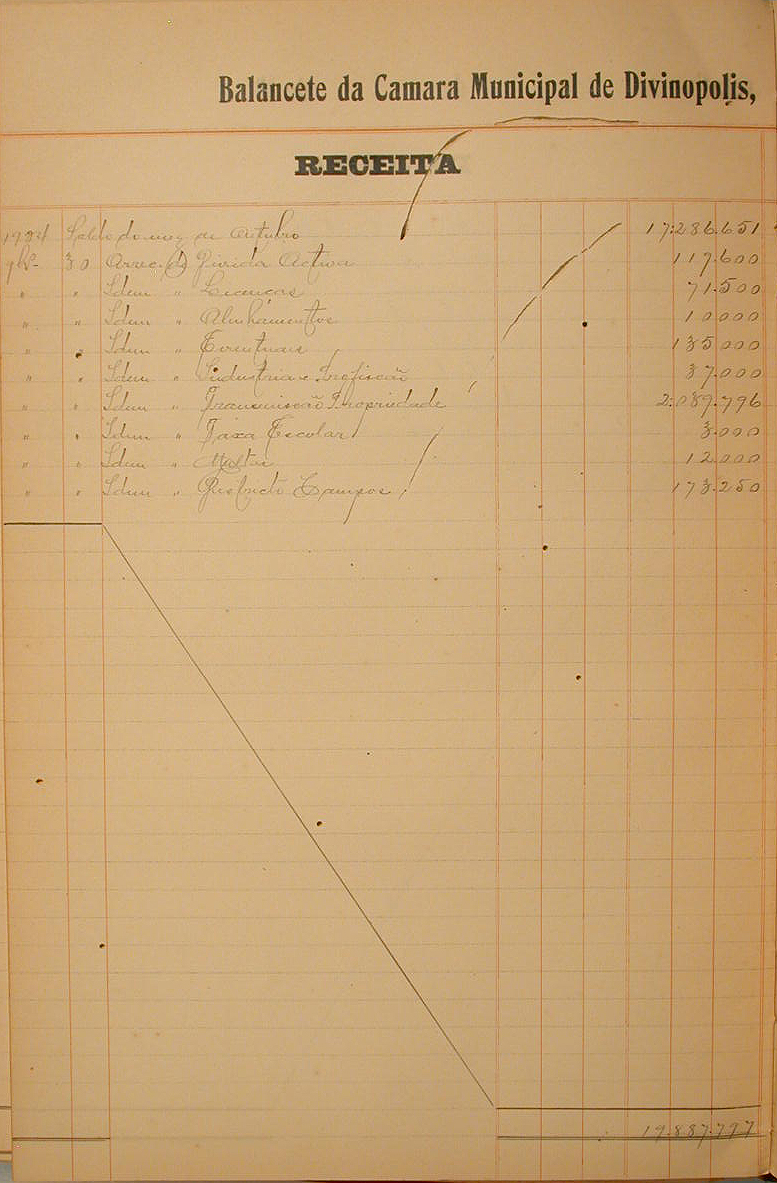 Balancete da Camara Municipal de Divinopolis,
RECEITA
Saldo do mez de Outubro 17:286.651
30 Arrec. (d) Divida Activa 117.600
" " Idem " Licenças 71.500
" " Idem " Alinhamentos 10000
" " Idem " Eventuaes 135000
" " Idem " Industria e Profissão 37.000
" " Idem " Transmissão Propriedade 2:089.796
" " Idem " Taxa Escolar 3.000
" " Idem " Multas 12000
" " Idem " Districto Campos 173.250
19.887.797